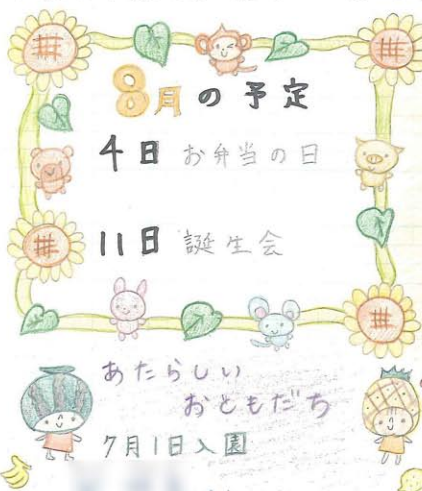 8月の予定
4日 お弁当の日
11日 誕生会
あたらしい
おともだち
7月1日入園